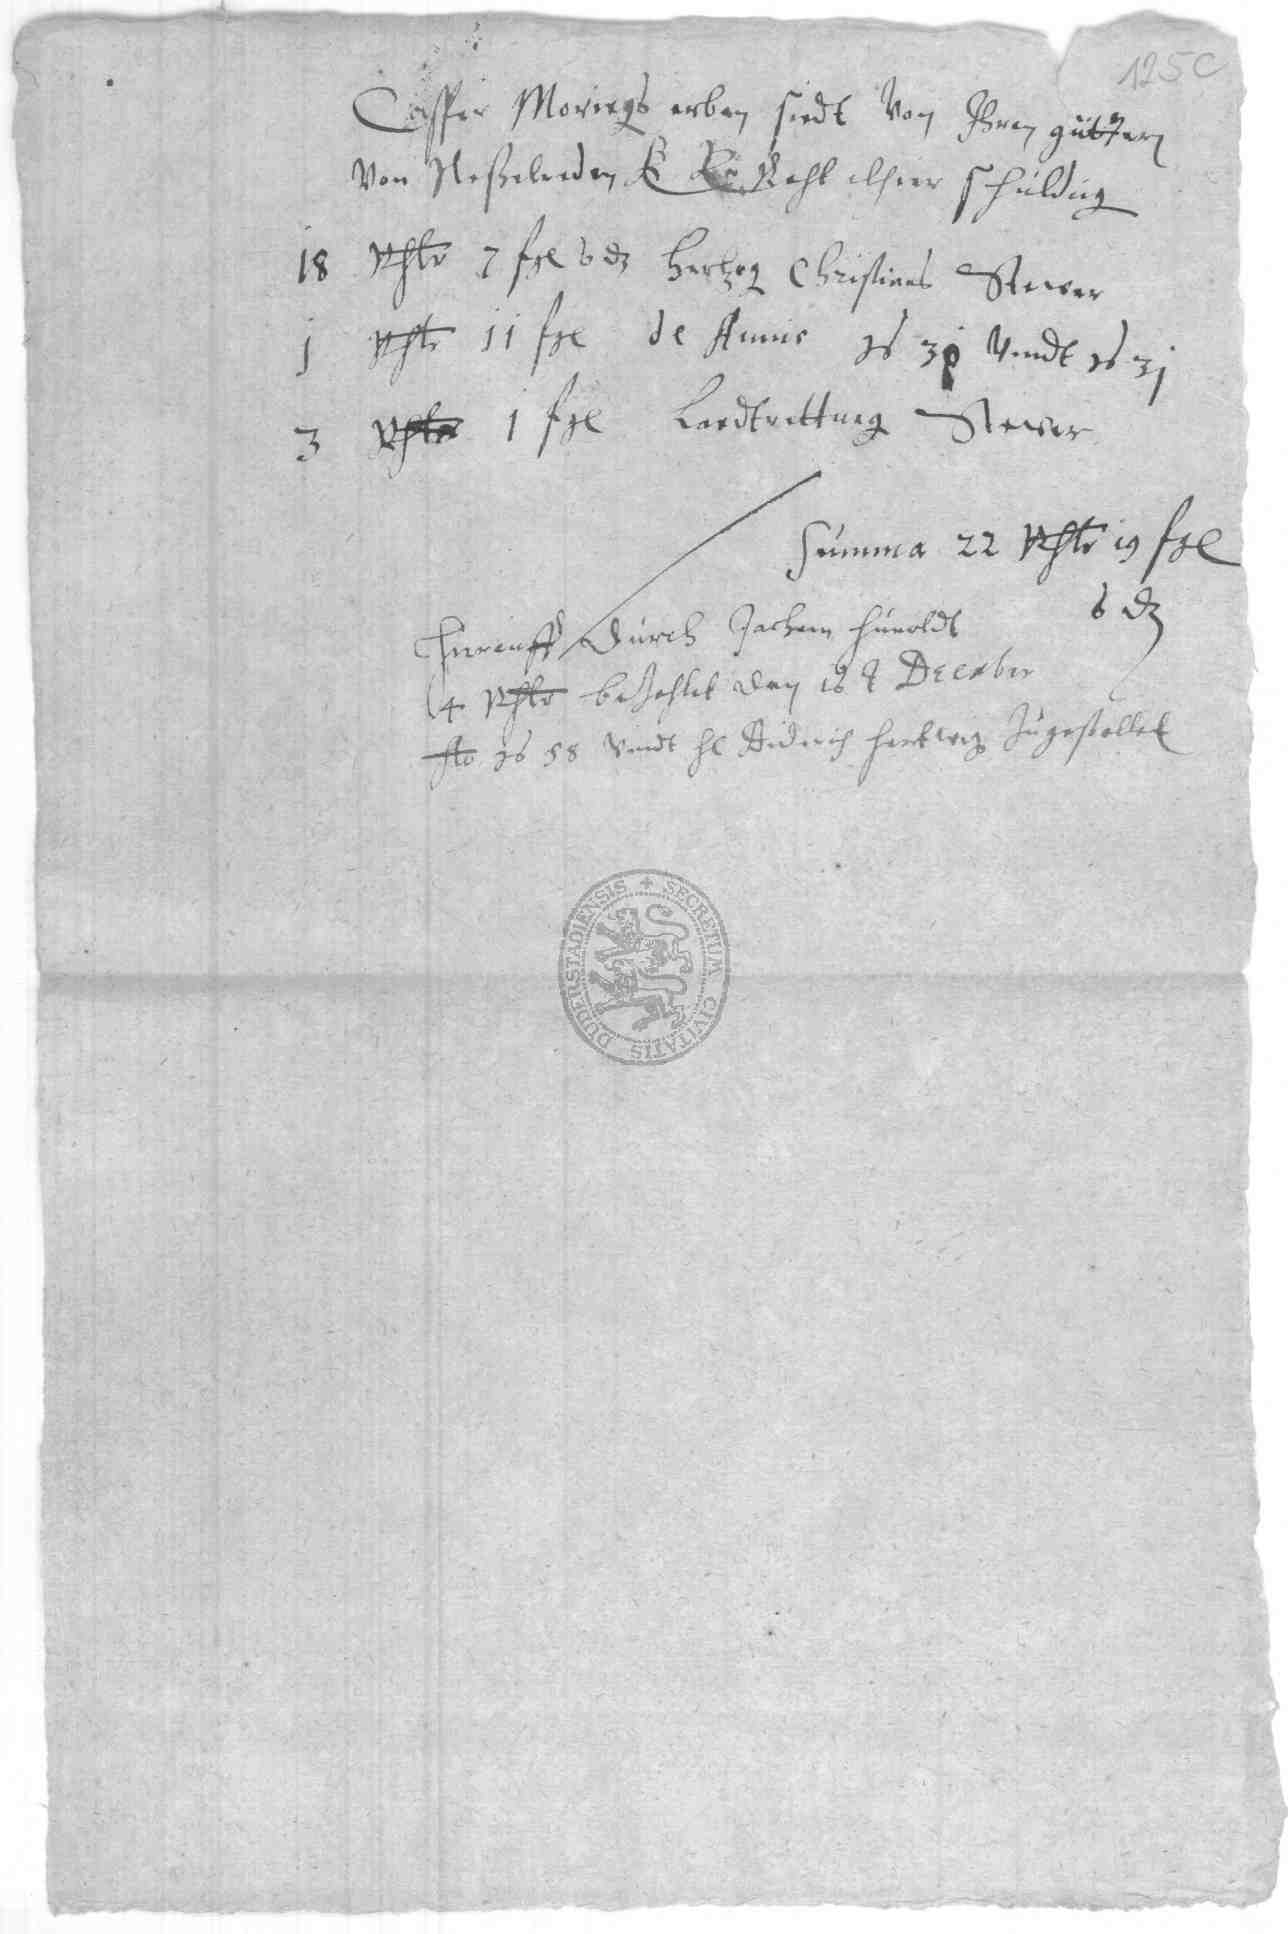 125 C
Casper Morings erben sindt Von Ihren güttern
Von Neßelreden E E Raht alhier schuldig
18 Rthlr 7 ſgl 6 ₰ Hertzog Christians Stewer
j Rthlr 11 ſgl de Annis 16 30 Vndt 16 3j
3 Rthlr 1 ſgl Landtrettung Stewer
Summa 22 Rthlr 19 ſgl
6 ₰
Hierauff durch Jachem Hunoldt
4 Rthlr bezahlet den 18 t December
Ao 16 58 Vndt H Hartwig Zugestellet
SECRETUM CIVITATIS DUDERSTADIENSIS